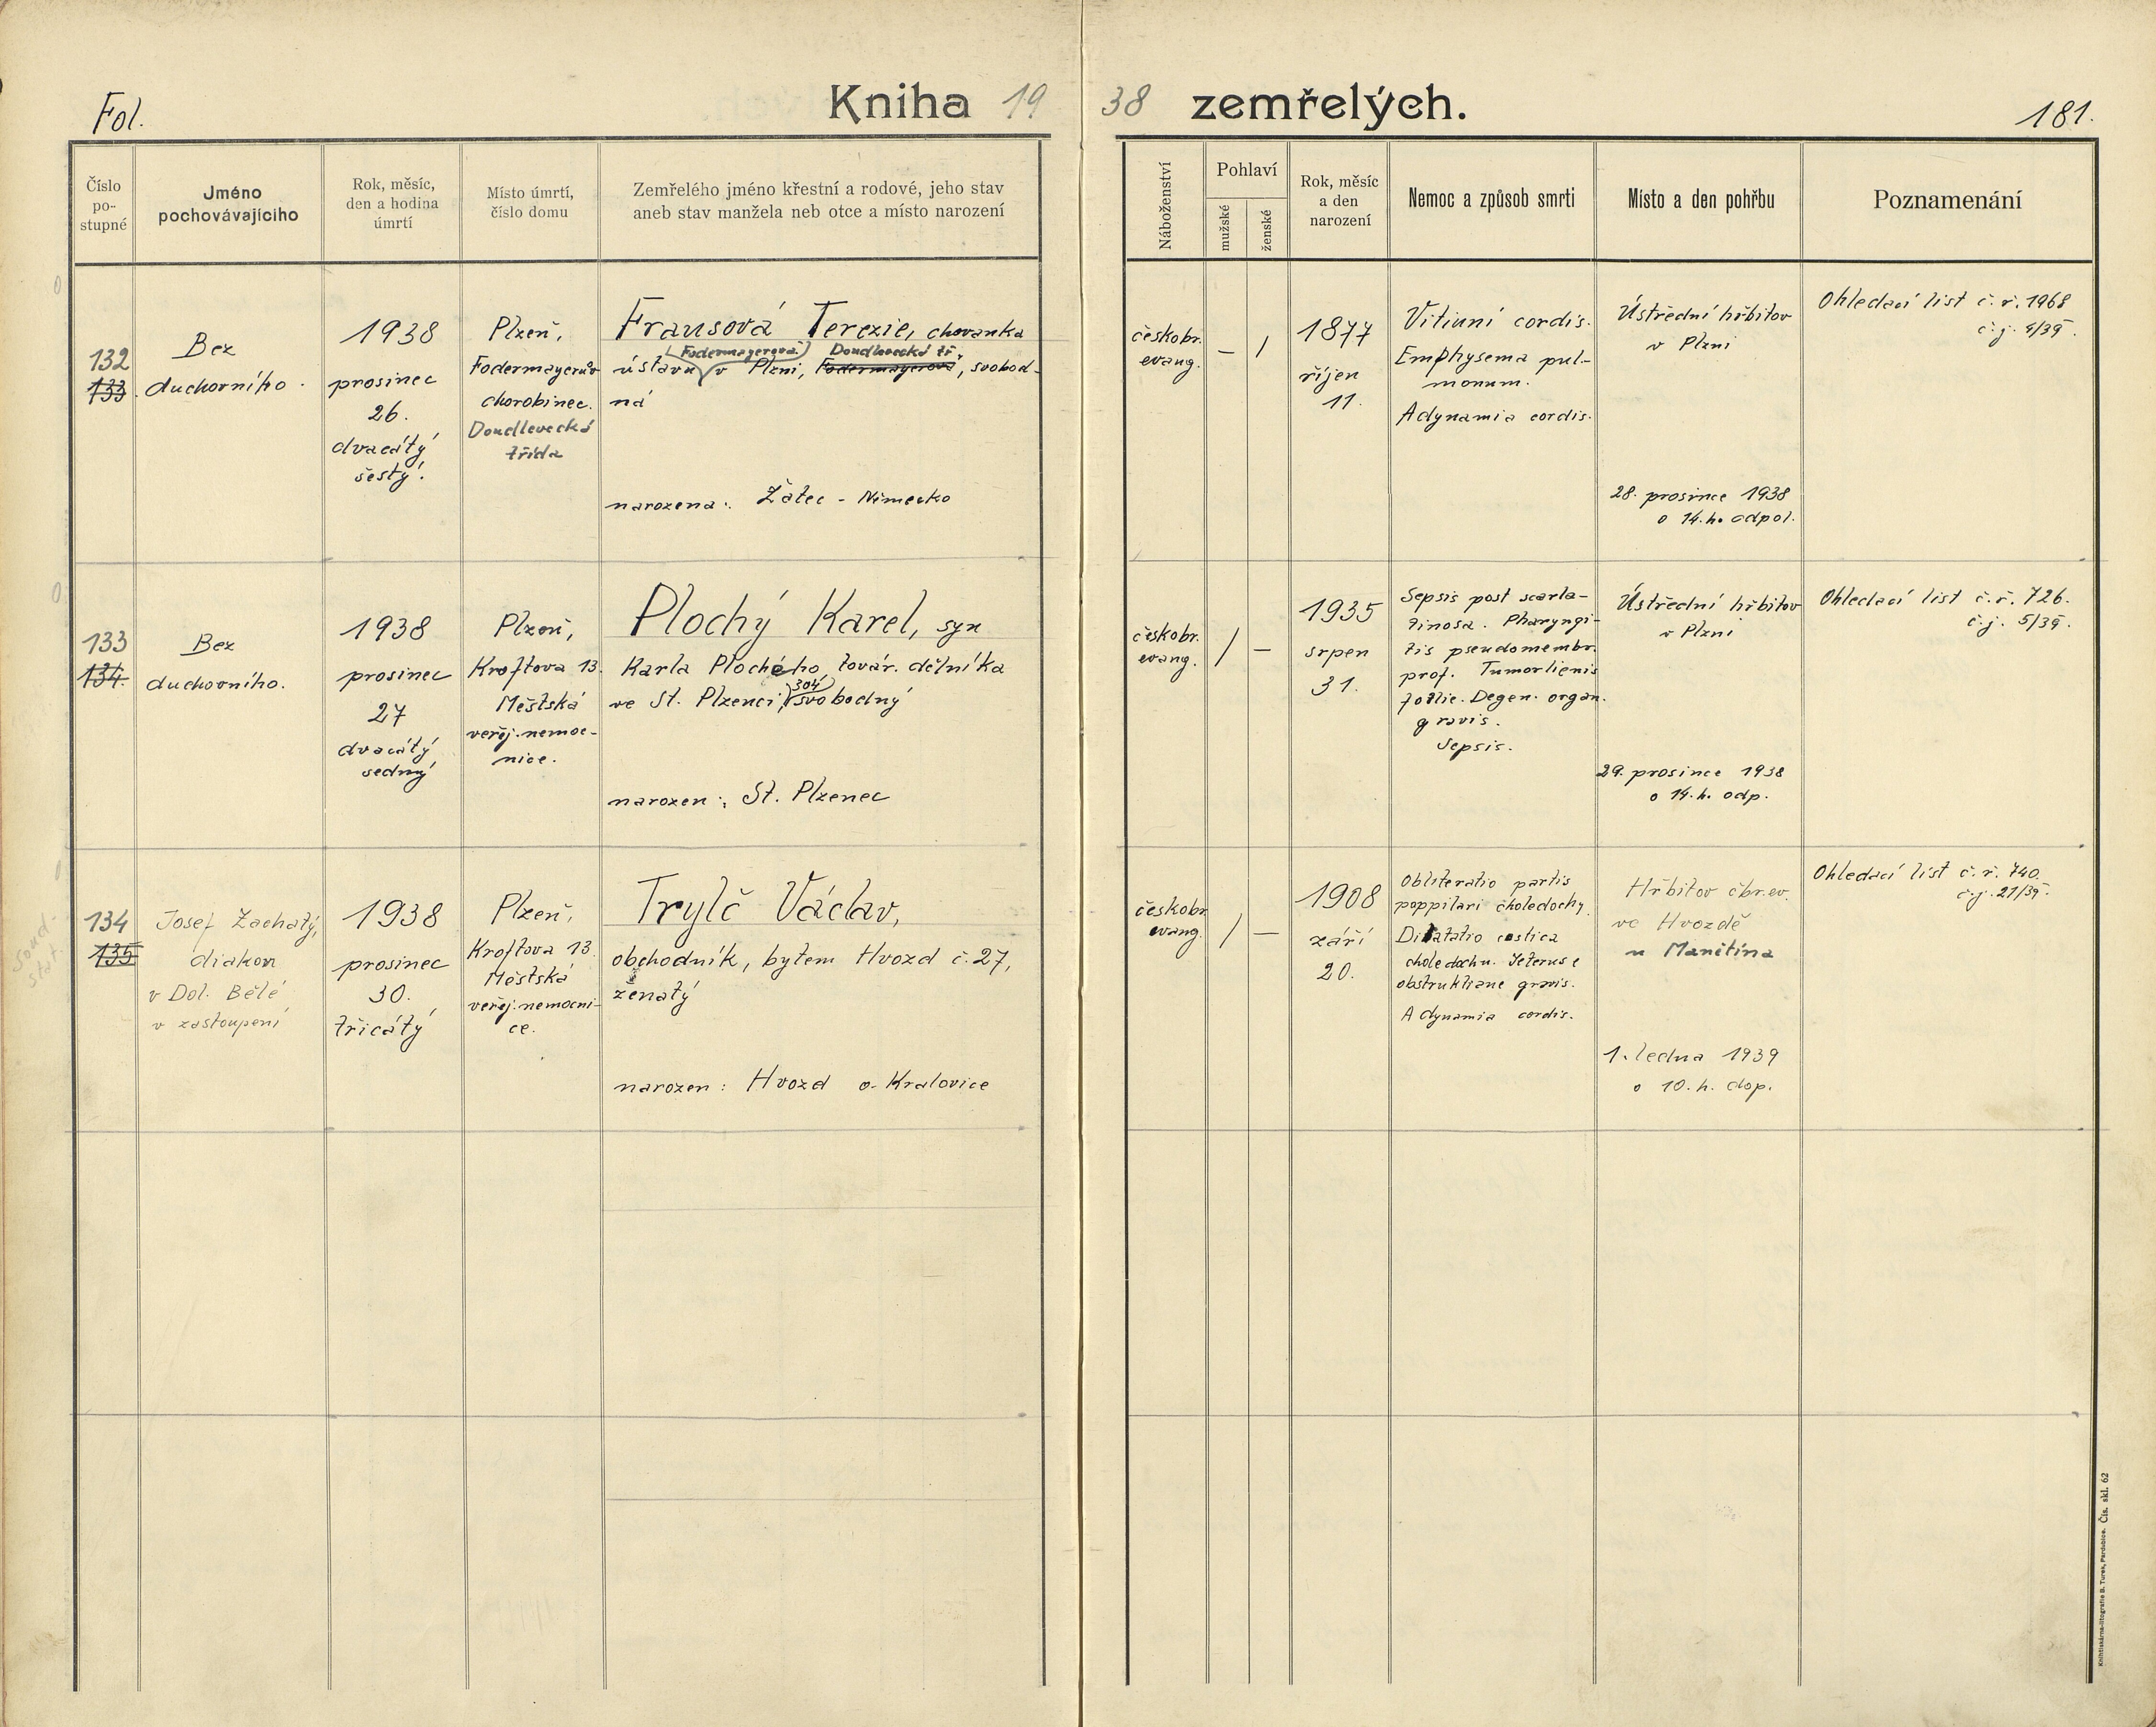 Fol.
Kniha 1938 zemřelých.
181.
Číslo
po-
stupné
Jméno
pochovávajícího
Rok, měsíc,
den a hodina
úmrtí
Místo úmrtí,
číslo domu
Zemřelého jméno křestní a rodové, jeho stav
aneb stav manžela neb otce a místo narození
Náboženství
Pohlaví
mužské
ženské
Rok, měsíc
a den
narození
Nemoc a způsob smrti
Místo a den pohřbu
Poznamenání
132
133.
Bez
duchovního.
1938
prosinec
26.
dvacátý
šestý.
Plzeň,
Fodermayerův
chorobinec.
Doudlevecká
třída
Fransová Terezie, chovanka
Fodermayerova Doudlevecká tř.
ústavu v Plzni, Fodermayerova, svobod-
ná
narozena: Žatec - Německo
českobr.
evang.
— /
1877
říjen
11.
Vitiuni cordis.
Emphysema pul-
monum.
Adynamia cordis.
Ústřední hřbitov
v Plzni
28. prosince 1938
o 14. h. odpol.
Ohledací list č. ř. 1968
č.j. 4/39.
133
134.
Bez
duchovního.
1938
prosinec
27
dvacátý
sedmý
Plzeň,
Kroftova 13.
Městská
veřej. nemoc-
nice.
Plochý Karel, syn
Karla Plochého, továr. dělníka
304
ve St. Plzenci, svobodný
narozen: St. Plzenec
českobr.
evang.
/ —
1935
srpen
31.
Sepsis post scarla-
tinosa. Pharyngi-
tis pseudomembr.
prof. Tumor lienis
Degen. organ.
gravis.
Sepsis.
Ústřední hřbitov
v Plzni
29. prosince 1938
o 14. h. odp.
Ohledací list č. ř. 726.
č.j. 5/39.
134
135
Josef Zachatý,
diakon
v Dol. Bělé
v zastoupení
1938
prosinec
30.
třicátý
Plzeň,
Kroftova 13.
Městská
veřej. nemocni-
ce.
Trylč Václav,
obchodník, bytem Hvozd č. 27,
ženatý
narozen: Hvozd o. Kralovice
českobr.
evang.
/ —
1908
září
20.
Obliteratio partis
poppilari choledochy.
Dilatatio cystica
choledochu. Icterus e
obstruktiane gravis.
Adynamia cordis.
Hřbitov čbr. ev.
ve Hvozdě
u Manětína
1. ledna 1939
o 10. h. dop.
Ohledací list č. ř. 740.
č.j. 21/39.
Knihtiskárna-litografie B. Turek, Pardubice. Čís. skl. 62